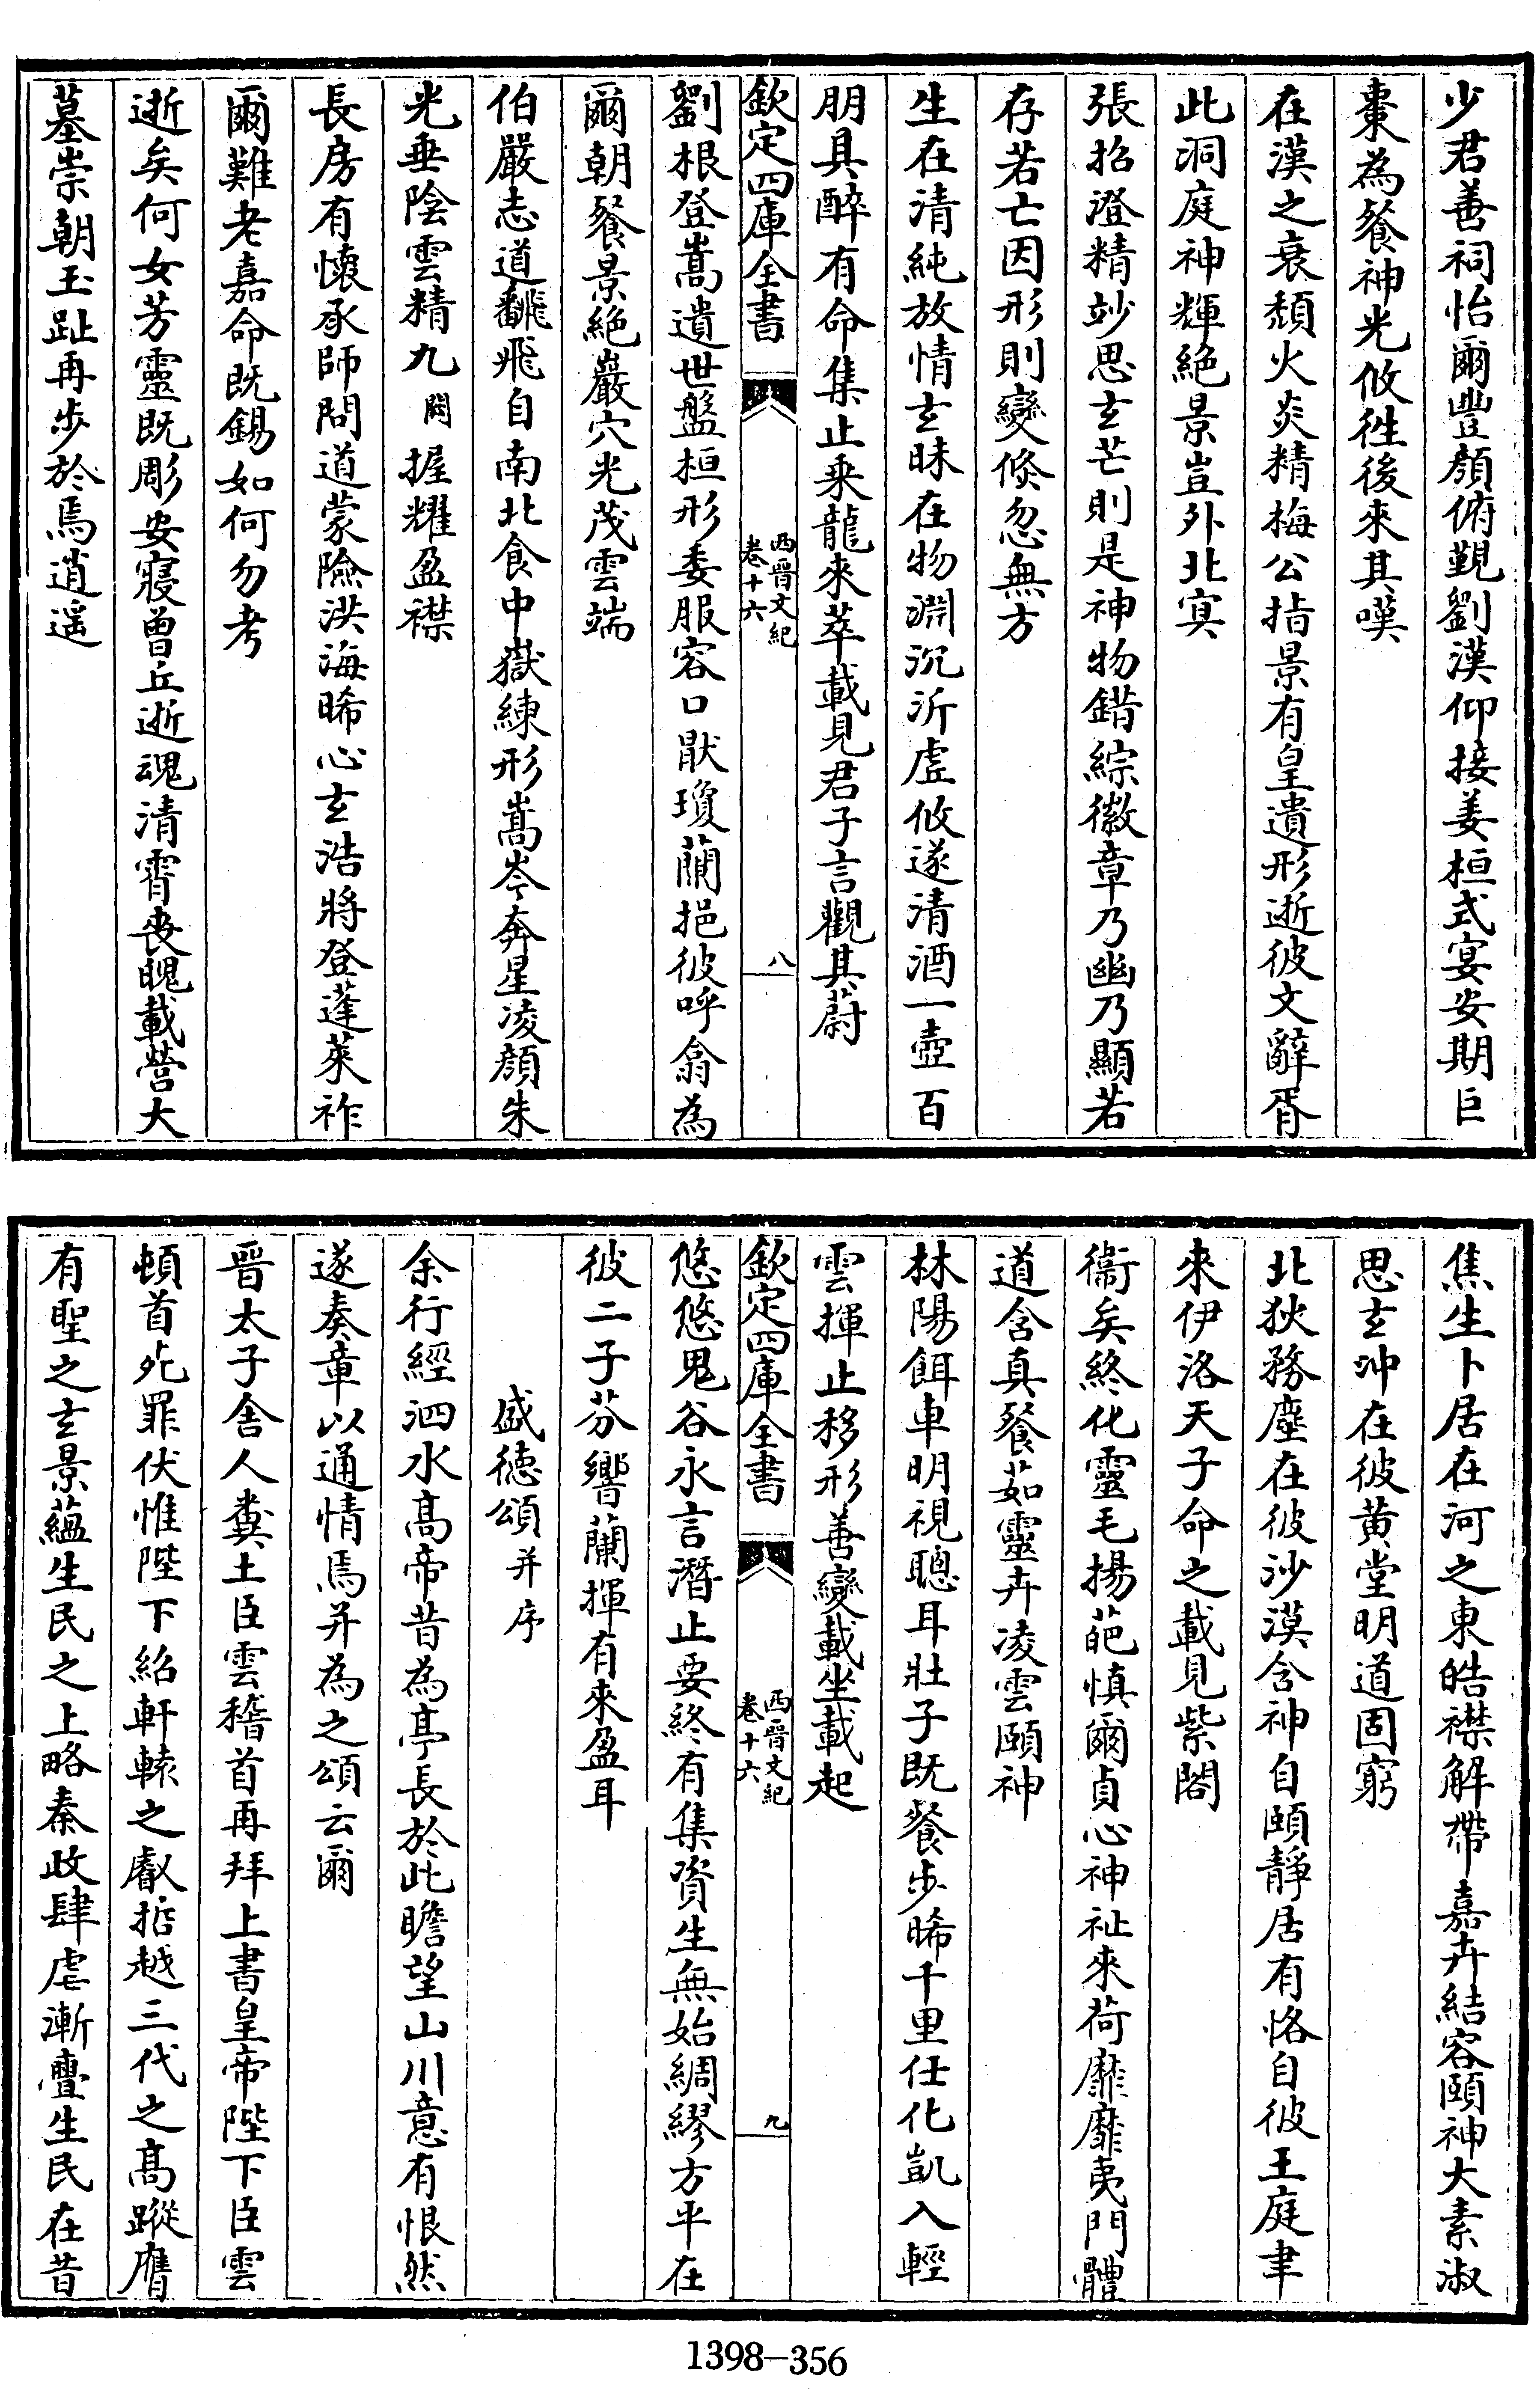 少君善祠怡爾豐顏俯覲劉漢仰接姜桓式宴安期巨
棗為餐神光攸徃後來其嘆
在漢之衰頹火炎精梅公指景有皇遺形逝彼文辭胥
此洞庭神輝絶景豈外北㝠
張招澄精妙思玄芒則是神物錯綜徽章乃幽乃顯若
存若亡因形則變倐忽無方
生在清純放情玄昧在物淵沉泝虛攸遂清酒一壺百
朋具醉有命集止乘龍來萃載見君子言觀其蔚
欽定四庫全書
西晉文紀
卷十六
八
劉根登嵩遺世盤桓形委服容口厭瓊蘭挹彼呼翕為
爾朝餐景絶巖穴光茂雲端
伯嚴志道飜飛自南北食中嶽練形嵩岑奔星凌顔朱
光垂陰雲精九闕握耀盈襟
長房有懷承師問道蒙險洪海晞心玄浩將登蓬萊祚
爾難老嘉命既錫如何勿考
逝矣何女芳靈既彫安寢曾丘逝魂清霄喪魄載營大
墓崇朝玉趾再步於焉逍遥
焦生卜居在河之東皓襟解帶嘉卉結容頤神大素淑
思玄沖在彼黄堂明道固窮
北狄務塵在彼沙漠含神自頤靜居有恪自彼王庭聿
來伊洛天子命之載見紫閣
衞矣終化靈毛揚葩慎爾貞心神祉來荷靡靡夷門體
道含真餐茹靈卉凌雲頤神
林陽餌車明視聰耳壯子既餐步晞千里仕化凱入輕
雲揮止移形善變載坐載起
欽定四庫全書
西晉文紀
卷十六
九
悠悠鬼谷永言潛止要終有集資生無始綢繆方平在
彼二子芬響蘭揮有來盈耳
盛德頌并序
余行經泗水髙帝昔為亭長於此瞻望山川意有恨然
遂奏章以通情焉并為之頌云爾
晉太子舍人糞土臣雲稽首再拜上書皇帝陛下臣雲
頓首死罪伏惟陛下紹軒轅之叡掂越三代之髙蹤膺
有聖之玄景蘊生民之上略秦政肆虐漸亹生民在昔
1398-356